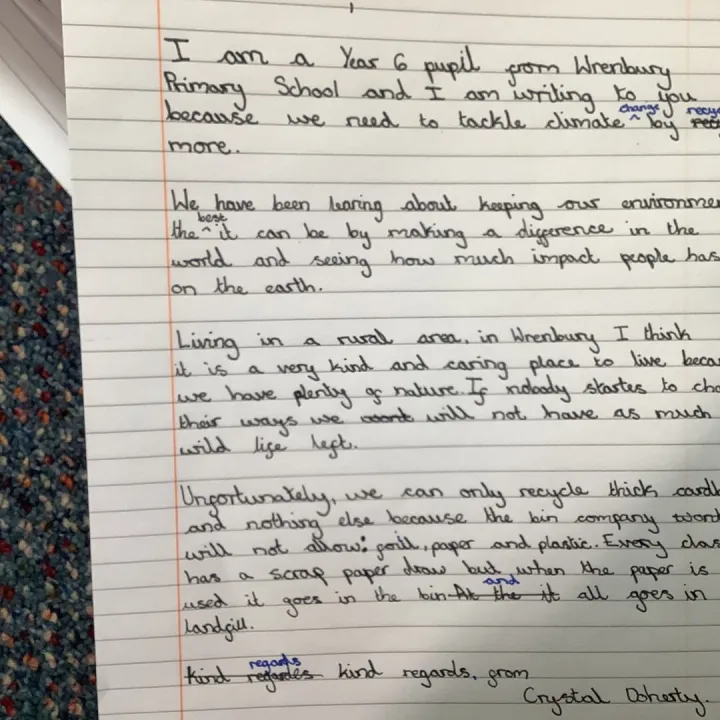 I am a Year 6 pupil from Wrenbury
Primary School and I am writing to you
because we need to tackle climate change by
more.
We have been learing about keeping our
the best it can be by making a difference in the
world and seeing how much impact people has
on the earth.
Living in a rural area, in Wrenbury I think
it is a very kind and caring place to live
we have plenty of nature. If nobody startes to
their ways we will not have as much
wild life left.
Unfortunately, we can only recycle thick
and nothing else because the bin company
will not allow: foil, paper and plastic. Every
has a scrap paper draw but when the paper is
used it goes in the bin and all goes in
landfill.
kind regards kind regards, from
Crystal Doherty.